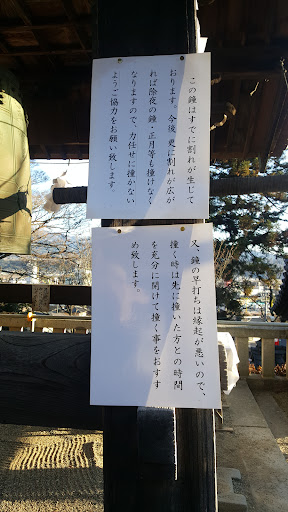 この鐘はすでに割れが生じて
おります。今後、更に割れが広が
れば除夜の鐘・正月等も撞けなく
なりますので、力任せに撞かない
ようご協力をお願い致します。
又、鐘の早打ちは縁起が悪いので、
撞く時は先に撞いた方との時間
を充分に開けて撞く事をおすす
め致します。